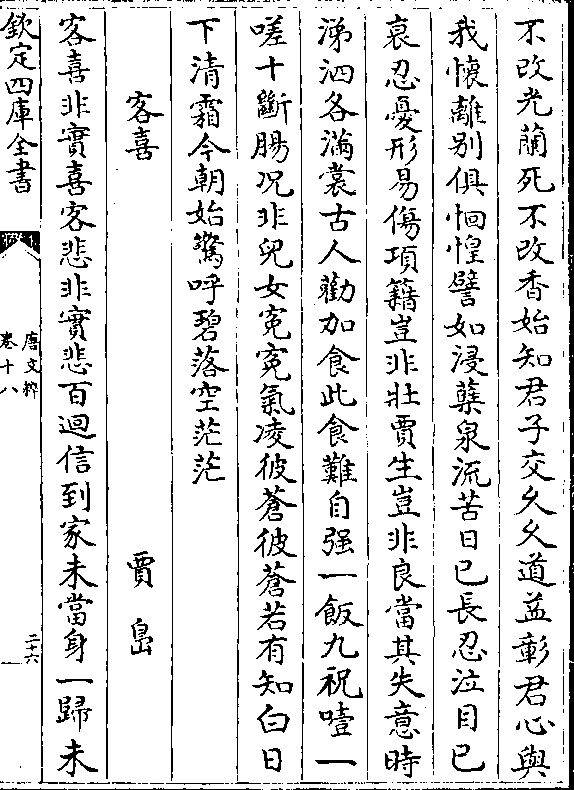 不改光蘭死不改香始知君子交久久道益彰君心與
我懷離别俱恛惶譬如浸蘗泉流苦日已長忍泣目已
衰忍憂形易傷項籍豈非壯賈生豈非良當其失意時
涕泗各滿裳古人勸加食此食難自强一飯九祝噎一
嗟十斷腸况非兒女寃寃氣凌彼蒼彼蒼若有知白日
下清霜今朝始驚呼碧落空茫茫
客喜 賈島
客喜非實喜客悲非實悲百迴信到家未當身一歸未
欽定四庫全書
唐文粹
卷十八
二十六